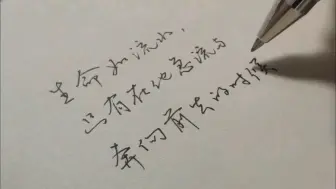 生命如流水，
只有在他急流与
奔向前去的时候